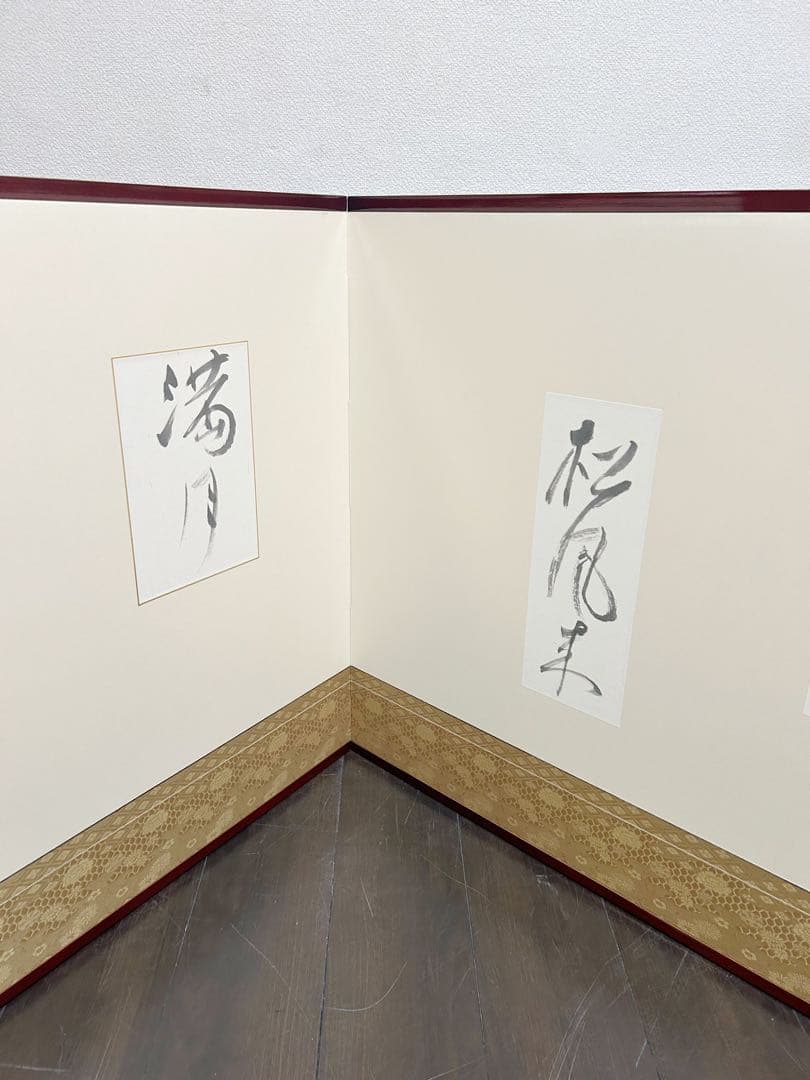 松風来
満月